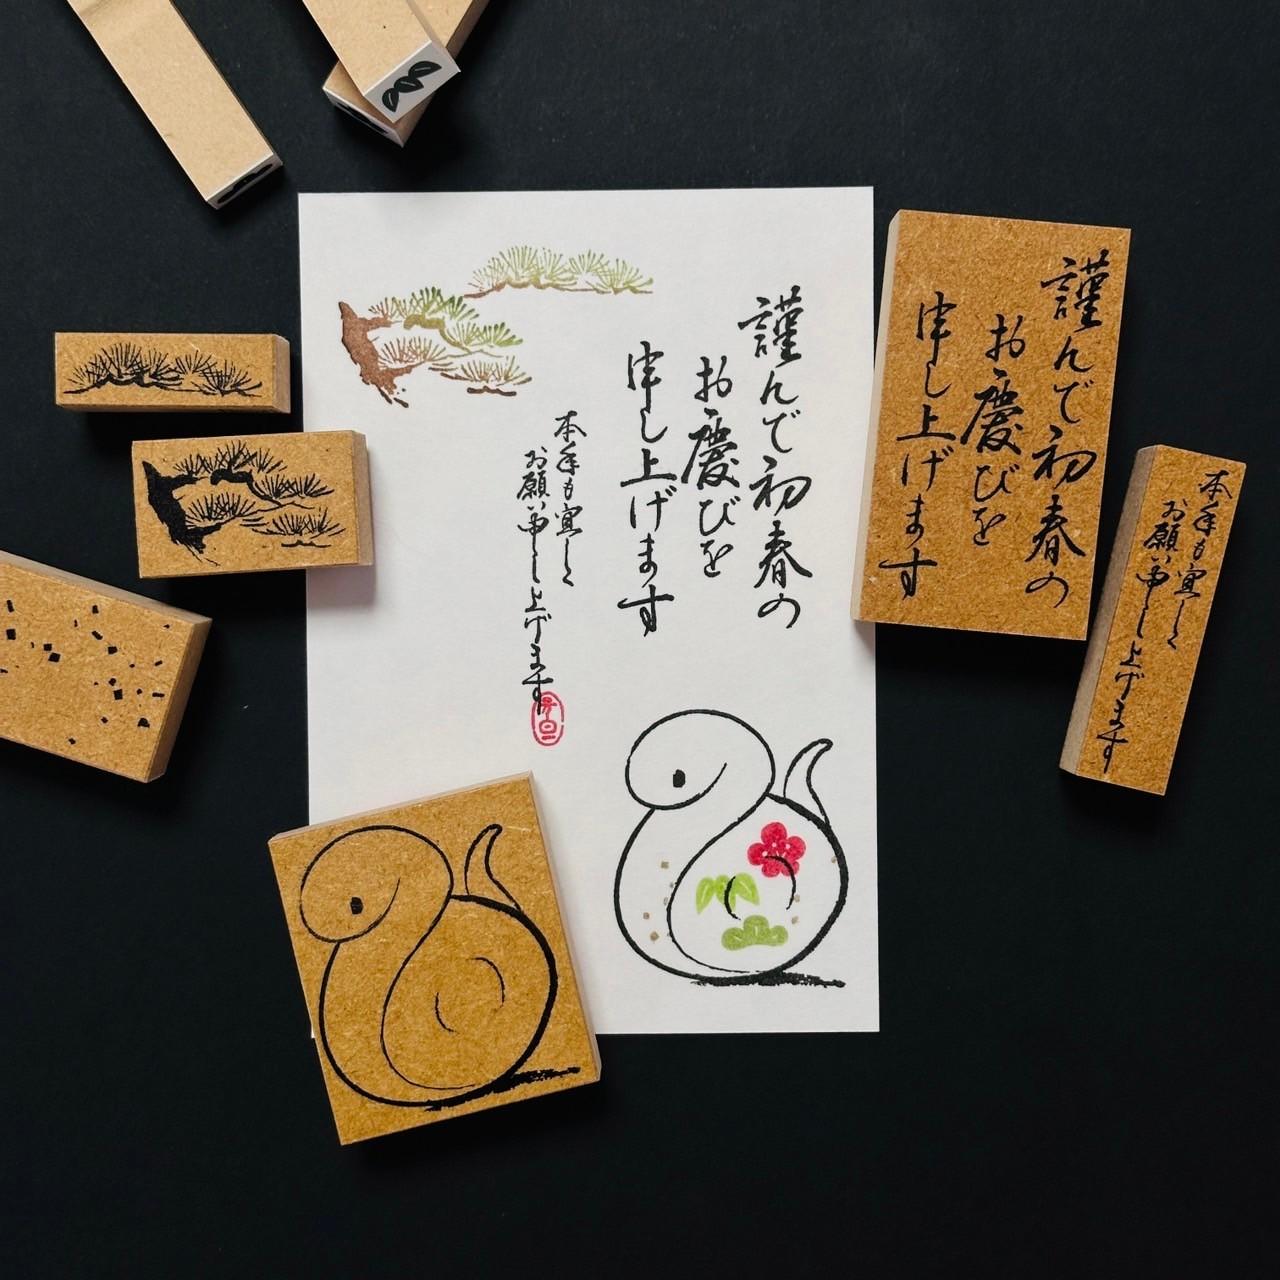 謹んで初春の
お慶びを
申し上げます
本年も宜しく
お願い申し上げます
元旦
謹んで初春の
お慶びを
申し上げます
本年も宜しく
お願い申し上げます